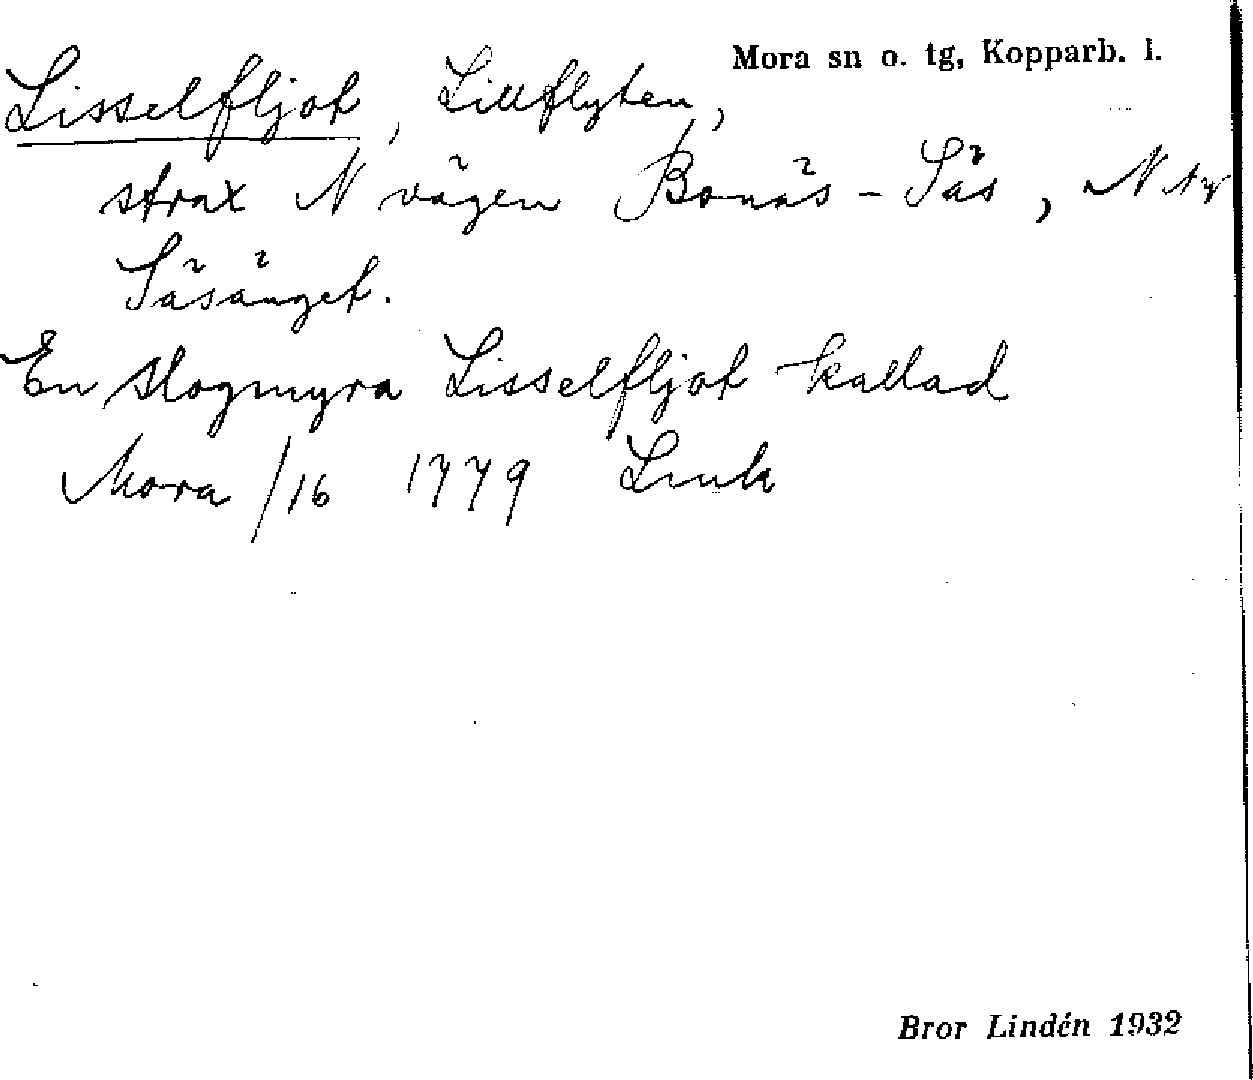 Mora sn o. tg, Kopparb. l.
Lisselfljot, Lillflyten,
strax N vägen Bonäs – Säs, N
Säsänget.
En slogmyra Lisselfljot kallad
Mora /16 1779 Lmk
Bror Lindén 1932